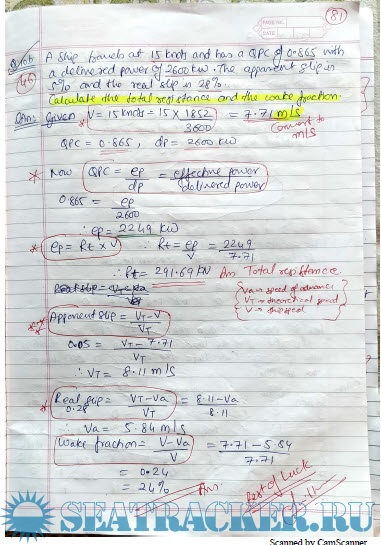 81
PAGE NO.
DATE
Prob A Ship travels at 15 knots and has a QPC of 0.865 with
46 a delivered power of 2600 kw. The apparent slip is
5% and the real slip is 28%.
Calculate the total resistance and the wake fraction.
Ans: Given V = 15 knots = 15 x 1852 / 3600 = 7.71 m/s
Convert to m/s
QPC = 0.865, dp = 2600 kw
* Now QPC = ep / dp = effective power / delivered power
0.865 = ep / 2600
∴ ep = 2249 kw
* ep = Rt x V ∴ Rt = ep / V = 2249 / 7.71
∴ Rt = 291.69 KN Ans Total resistance
Real slip =
Va → speed of advance
VT → theoretical speed
V → ship speed
* Apparent slip = VT - V / VT
0.05 = VT - 7.71 / VT
∴ VT = 8.11 m/s
* Real slip = VT - Va / VT = 8.11 - Va / 8.11
0.28
∴ Va = 5.84 m/s
Wake fraction = V - Va / V = 7.71 - 5.84 / 7.71
= 0.24
= 24% Ans
Best of Luck
SEATRACKER.RU
Scanned by CamScanner